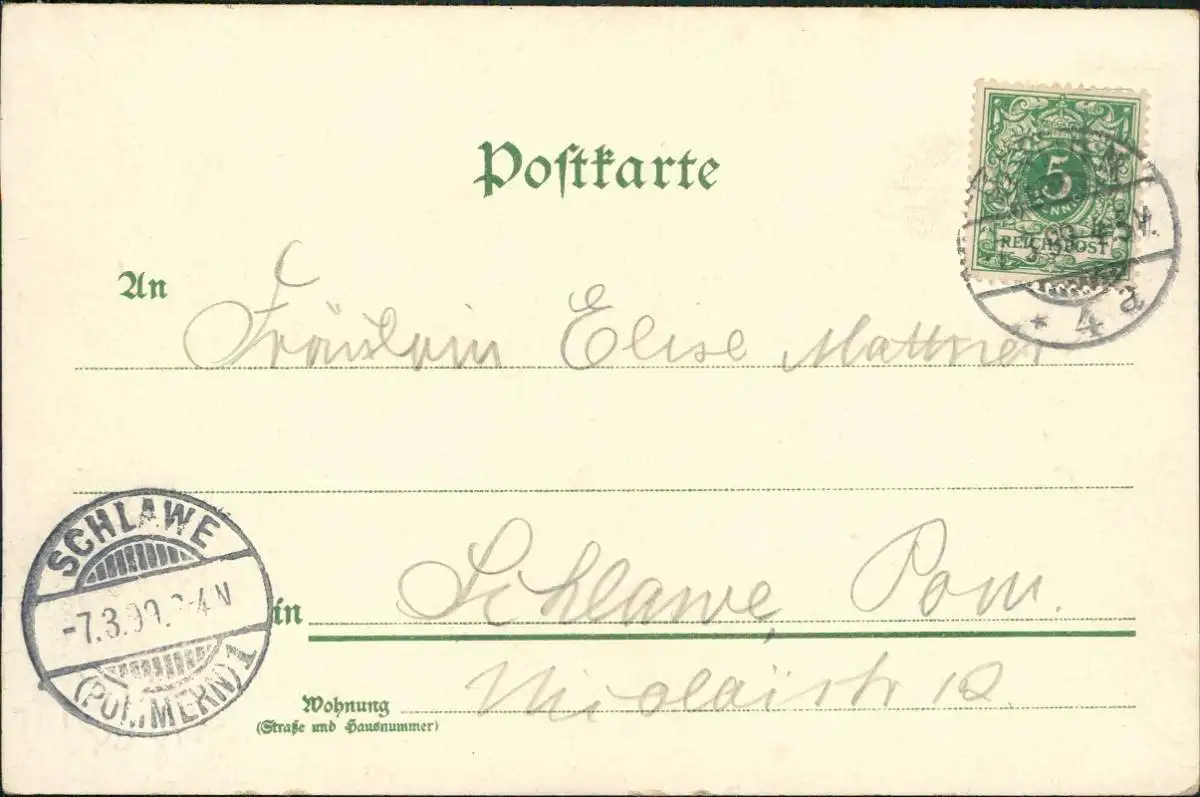 Postkarte
5
PFENNIG
REICHSPOST
4 a
An Fräulein Elise Mattner
SCHLAWE
-7.3.99. 3-4 N
(POMMERN) 1
in Schlawe, Pom.
Wohnung
(Straße und Hausnummer)
Nicolaistr 12